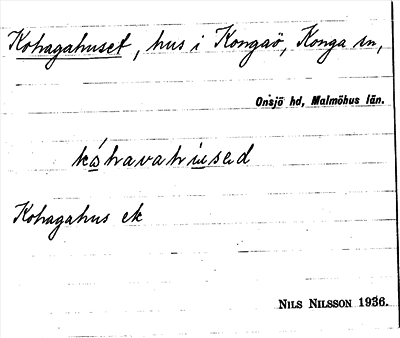 Kohagahuset, hus i Kongaö, Konga sn,
Onsjö hd, Malmöhus län.
kóhavahúsed
Kohagahus ek
NILS NILSSON 1936.